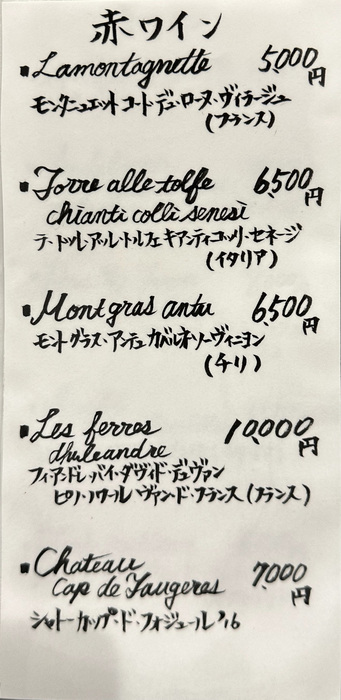 赤ワイン
■Lamontagnette 5,000円
モンタニュエット コート・デュ・ローヌ・ヴィラージュ
(フランス)
■Torre alle tolfe 6,500円
chianti colli senesi
テ・トッレ・アッレ・トルフェ キアンティコッリ・セネージ
(イタリア)
■Montgras antu 6,500円
モントグラス・アンテュ カベルネ・ソーヴィニヨン
(チリ)
■Les ferres 10,000円
dhuleandre
フィアンドレ・バイ・ダヴィド・デュヴァン
ピノ・ノワール ヴァン・ド・フランス (フランス)
■Chateau
Cap de Faugeres 7,000円
シャトー・カップ・ド・フォジュール '16